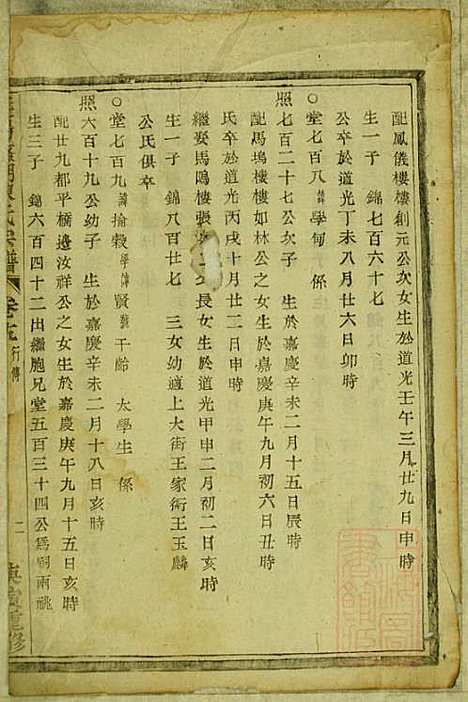 配鳳儀樓樓創元公次女生於道光壬午三月廿九日申時
生一子 錦七百六十七
公卒於道光丁未八月廿六日卯時
○堂七百八 諱學甸 係
照七百二十七公次子 生於嘉慶辛未二月十五日辰時
配馬塢樓樓如林公之女生於嘉慶庚午九月初六日丑時
氏卒於道光丙戌十月二日
繼娶馬鳴樓張 長女生於道光甲申二月初二日亥時
生一子 錦八百廿七 三女幼適上大街王家衖王玉麟
公氏俱卒
○堂七百九 諱掄穀 學諱賢 號于齡 太學生 係
照六百十九公幼子 生於嘉慶辛未二月十八日亥時
配廿九都平橋邊汝祥公之女生於嘉慶庚午九月十五日亥時
生三子 錦六百四十二出繼胞兄堂五百三十四公為嗣兩祧
宗譜 卷 行傳 二 庚寅重修